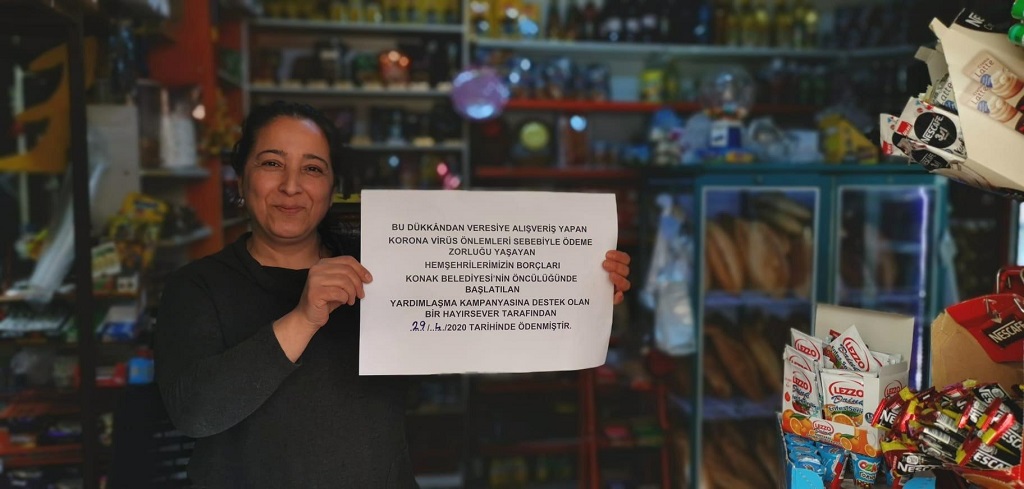 BU DÜKKÂNDAN VERESİYE ALIŞVERİŞ YAPAN
KORONA VİRÜS ÖNLEMLERİ SEBEBİYLE ÖDEME
ZORLUĞU YAŞAYAN
HEMŞEHRİLERİMİZİN BORÇLARI
KONAK BELEDİYESİ'NİN ÖNCÜLÜĞÜNDE
BAŞLATILAN
YARDIMLAŞMA KAMPANYASINA DESTEK OLAN
BİR HAYIRSEVER TARAFINDAN
29/../2020 TARİHİNDE ÖDENMİŞTİR.
NESCAFÉ
3ü1
LEZZO
LEZZO
LEZZO
NESCAFÉ